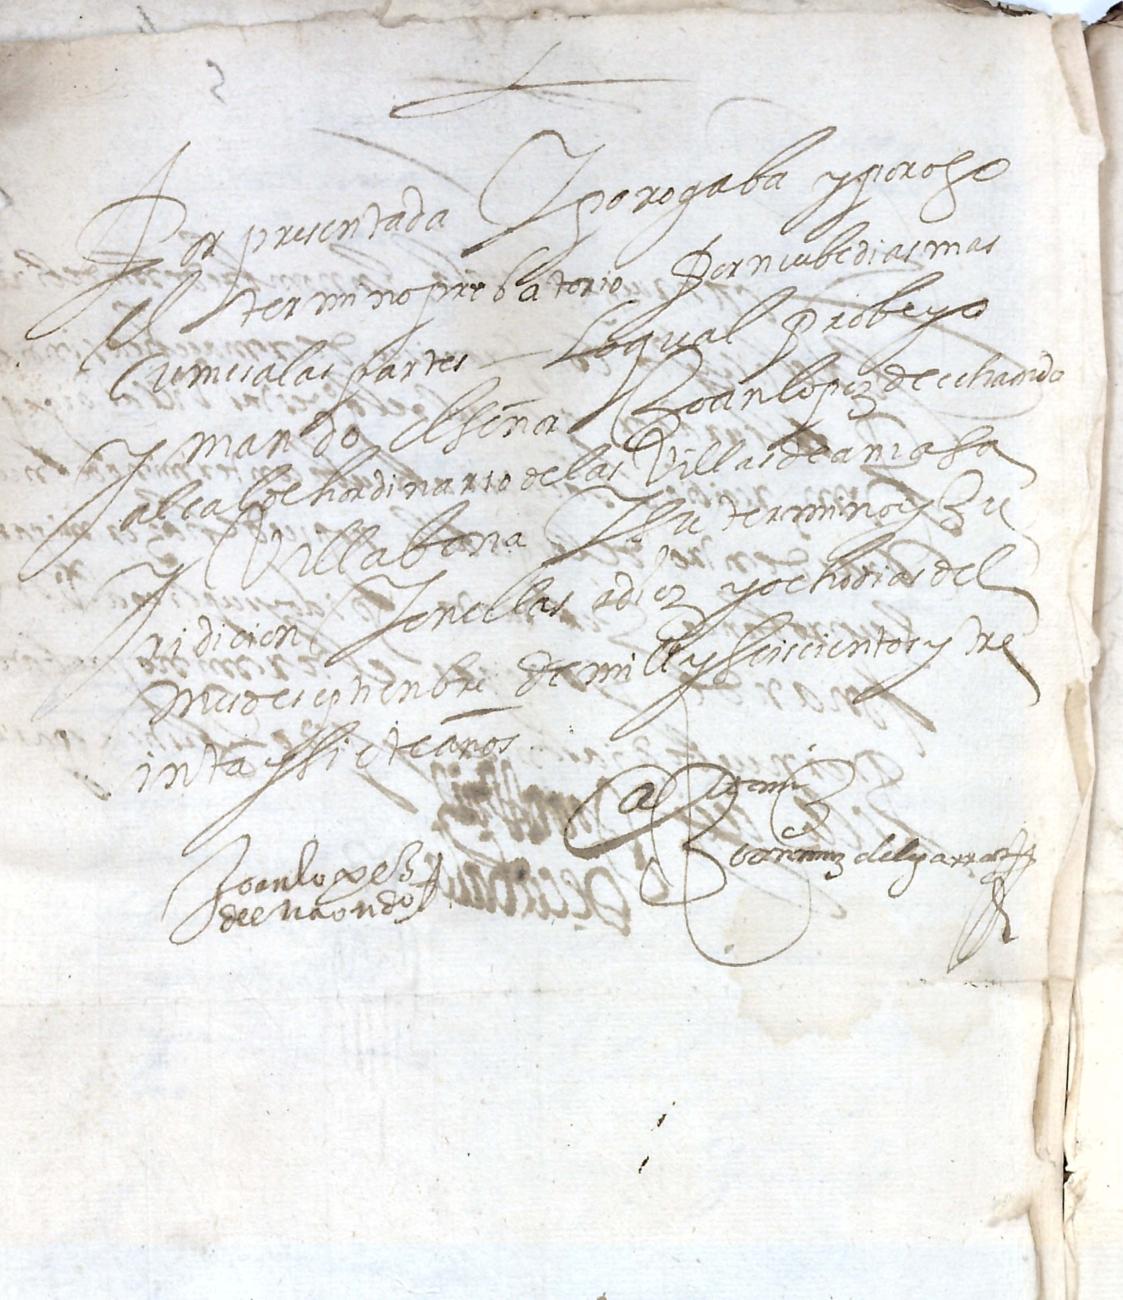 Por presentada Y porogaba y porogo
El termino probatorio Por nuebe dias mas
comun a las partes Lo qual Probeyo
Y mando el señor Joan lopez de echando
alcalde hordinario de las Villas de amasa
Villabona Y su termino y Ju
ridicion Y en ellas a diez y ocho dias del
mes de septienbre de mill y seiscientos y tre
inta y siete años
Joan lopez
de echaondo